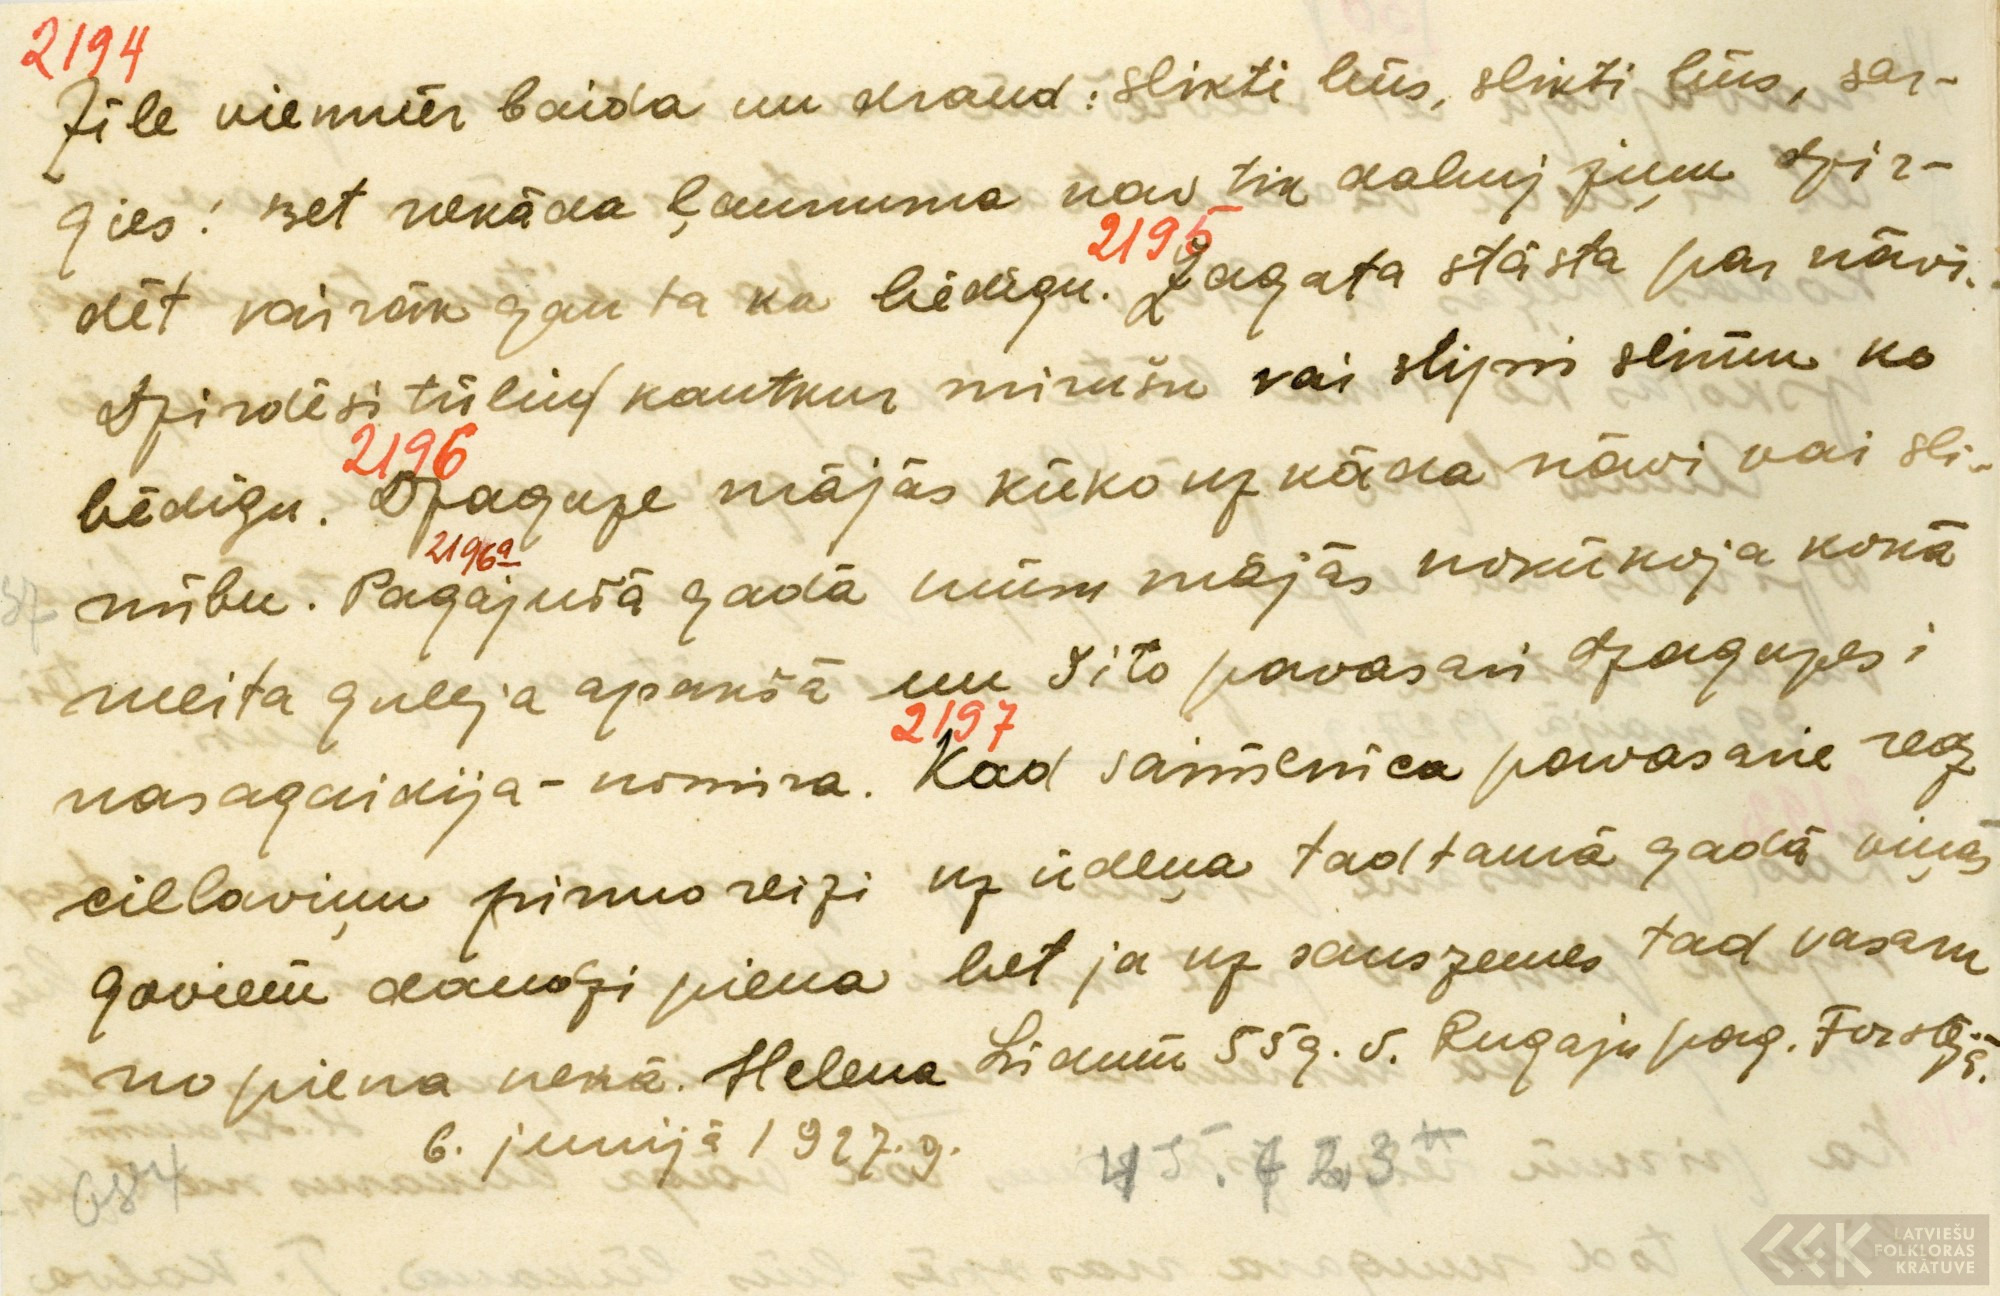 2194
Zīle vienmēr baida un draud: slikti būs, slikti būs, sar-
gies! Bet nekāda ļaunuma nav tik dabuj ziņu dzir-
2195
dēt vairāk gan ta ka bēdīgu. Žagata stāsta par nāvi.
Dzirdēsi tūliņ kautkur mirušu vai stipri slimu ko
2196
bēdīgu. Dzaguze mājās kūko uz kāda nāvi vai sli-
2196a
mību. Pagājušā gadā mūsu mājās nokūkoja kokā
meita guleja apakšā un šito pavasari dzaguzes i
2197
nasagaidija - nomira. Kad saimenica pavasarie redz
ciellaviņu pirmo reizi uz ūdeņa tad tamā gadā viņas
goviem daudzi piena bet ja uz sauszemes tad vasaru
no piena nekā. Helena Liduma 55 g. v. Rugaju pag.
6. junijā 1927. g.
45.723
684
LATVIEŠU
FOLKLORAS
KRĀTUVE